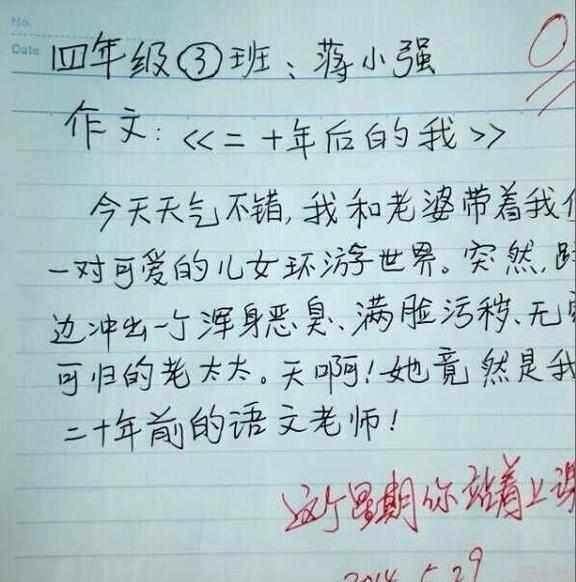 No.
Date
四年级③班:蒋小强
0
作文:《二十年后的我》
今天天气不错,我和老婆带着我
一对可爱的儿女环游世界。突然,
边冲出一个浑身恶臭、满脸污秽、无
可归的老太太。天啊!她竟然是我
二十年前的语文老师!
这个星期你站着上课
2014.5.29